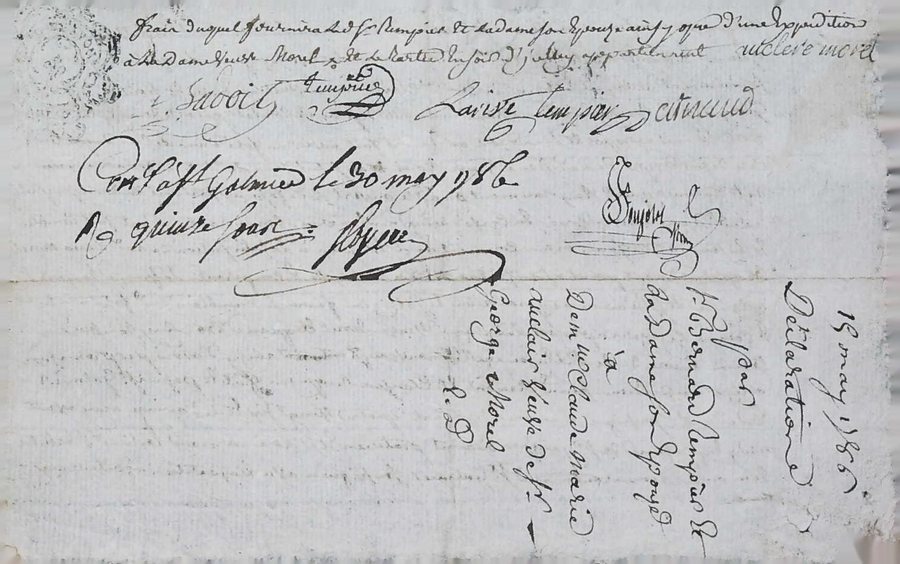 frair duquel fournira led Sr Tempier et Ladame son Epouze ainsy que d'une Expedition
a Ladame veuve Morel et de partie En soir d'y celluy appartenant auclere morel
Savoit Tempier
Lariste Tempier Arnaud
Conlé a st Galmier le 30 may 1786
R quinze sous
15 may 1786
Déclaration
par
Sr Bernard Tempier Et
La Dame son Epouze
à
Demlle Claude Marie
auclair veuve de Sr
George Morel
E. D